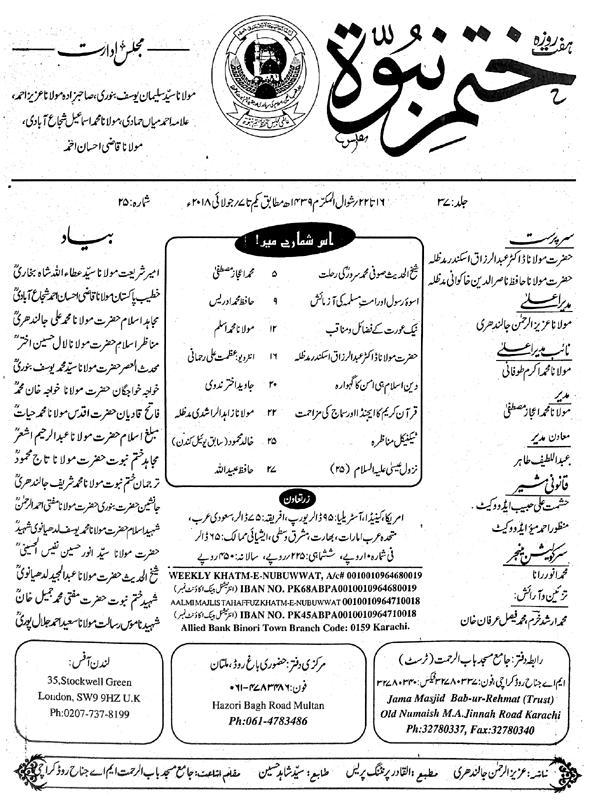 ہفت روزہ
ختم نبوۃ
مجلس ادارت
مولانا سید سلیمان یوسف بنوری، صاحبزادہ مولانا عزیز احمد،
علامہ احمد میاں حمادی، مولانا محمد اسماعیل شجاع آبادی،
مولانا قاضی احسان احمد
جلد: ۳۷
۱۶ تا ۲۲/ شوال المکرم ۱۴۳۹ھ مطابق یکم تا ۷/ جولائی ۲۰۱۸ء
شمارہ: ۲۵
سرپرست
حضرت مولانا ڈاکٹر عبدالرزاق اسکندر مدظلہ
حضرت مولانا حافظ ناصرالدین خاکوانی مدظلہ
مدیر اعلیٰ
مولانا عزیز الرحمٰن جالندھری
نائب مدیر اعلیٰ
مولانا محمد اکرم طوفانی
مدیر
مولانا محمد اعجاز مصطفیٰ
معاون مدیر
عبداللطیف طاہر
قانونی مشیر
حشمت علی حبیب ایڈووکیٹ
منظور احمد میؤ ایڈووکیٹ
سرکولیشن منیجر
محمد انور رانا
تزئین و آرائش:
محمد ارشد خرم، محمد فیصل عرفان خان
اس شمارے میں!
شیخ الحدیث صوفی محمد سرور کی رحلت ۵ محمد اعجاز مصطفیٰ
اسوۂ رسول اور امت مسلمہ کی آزمائش ۹ حافظ محمد ادریس
نیک عورت کے فضائل و مناقب ۱۲ مولانا محمد اسلم
حضرت مولانا ڈاکٹر عبدالرزاق اسکندر مدظلہ ۱۶ انٹرویو: عظمت علی رحمانی
دین اسلام ہی امن کا گہوارہ ۲۰ جاوید اختر ندوی
قرآن کریم کا ایجنڈا اور سماج کی مزاحمت ۲۲ مولانا زاہد الراشدی مدظلہ
ٹیکنیکل مناظرہ ۲۵ خالد محمود (سابق یوئیل کندن)
نزول عیسیٰ علیہ السلام (۲۵) ۲۷ حافظ عبیداللہ
زر تعاون
امریکا، کینیڈا، آسٹریلیا: ۹۵ ڈالر یورپ، افریقہ: ۷۵ ڈالر، سعودی عرب،
متحدہ عرب امارات، بھارت، مشرق وسطیٰ، ایشیائی ممالک: ۶۵ ڈالر
فی شمارہ ۱۰ روپے، ششماہی: ۲۲۵ روپے، سالانہ: ۴۵۰ روپے
WEEKLY KHATM-E-NUBUWWAT, A/c# 0010010964680019
IBAN NO. PK68ABPA0010010964680019 (انٹرنیشنل بینک اکاؤنٹ نمبر)
AALMI MAJLIS TAHAFFUZ KHATM-E-NUBUWWAT 0010010964710018
IBAN NO. PK45ABPA0010010964710018 (انٹرنیشنل بینک اکاؤنٹ نمبر)
Allied Bank Binori Town Branch Code: 0159 Karachi.
بیاد
امیر شریعت مولانا سید عطاء اللہ شاہ بخاریؒ
خطیب پاکستان مولانا قاضی احسان احمد شجاع آبادیؒ
مجاہد اسلام حضرت مولانا محمد علی جالندھریؒ
مناظر اسلام حضرت مولانا لال حسین اخترؒ
محدث العصر حضرت مولانا سید محمد یوسف بنوریؒ
خواجہ خواجگان حضرت مولانا خواجہ خان محمدؒ
فاتح قادیان حضرت اقدس مولانا محمد حیاتؒ
مبلغ اسلام حضرت مولانا عبدالرحیم اشعرؒ
مجاہد ختم نبوت حضرت مولانا تاج محمودؒ
ترجمان ختم نبوت مولانا محمد شریف جالندھریؒ
جانشین حضرت بنوری حضرت مولانا مفتی احمد الرحمٰنؒ
شہید اسلام حضرت مولانا محمد یوسف لدھیانوی شہیدؒ
حضرت مولانا سید انور حسین نفیس الحسینیؒ
شیخ الحدیث حضرت مولانا عبدالمجید لدھیانویؒ
شہید ختم نبوت حضرت مفتی محمد جمیل خانؒ
شہید ناموس رسالت مولانا سعید احمد جلال پوریؒ
رابطہ دفتر: جامع مسجد باب الرحمت (ٹرسٹ)
ایم اے جناح روڈ کراچی، فون: ۳۲۷۸۰۳۳۷ فیکس: ۳۲۷۸۰۳۴۰
Jama Masjid Bab-ur-Rehmat (Trust)
Old Numaish M.A.Jinnah Road Karachi
Ph:32780337, Fax:32780340
مرکزی دفتر: حضوری باغ روڈ، ملتان
فون: ۰۶۱-۴۷۸۳۴۸۶
Hazori Bagh Road Multan
Ph:061-4783486
لندن آفس:
35,Stockwell Green
London, SW9 9HZ U.K
Ph:0207-737-8199
ناشر: عزیز الرحمٰن جالندھری مطبع: القادر پرنٹنگ پریس طابع: سید شاہد حسین مقام اشاعت: جامع مسجد باب الرحمت ایم اے جناح روڈ کراچی